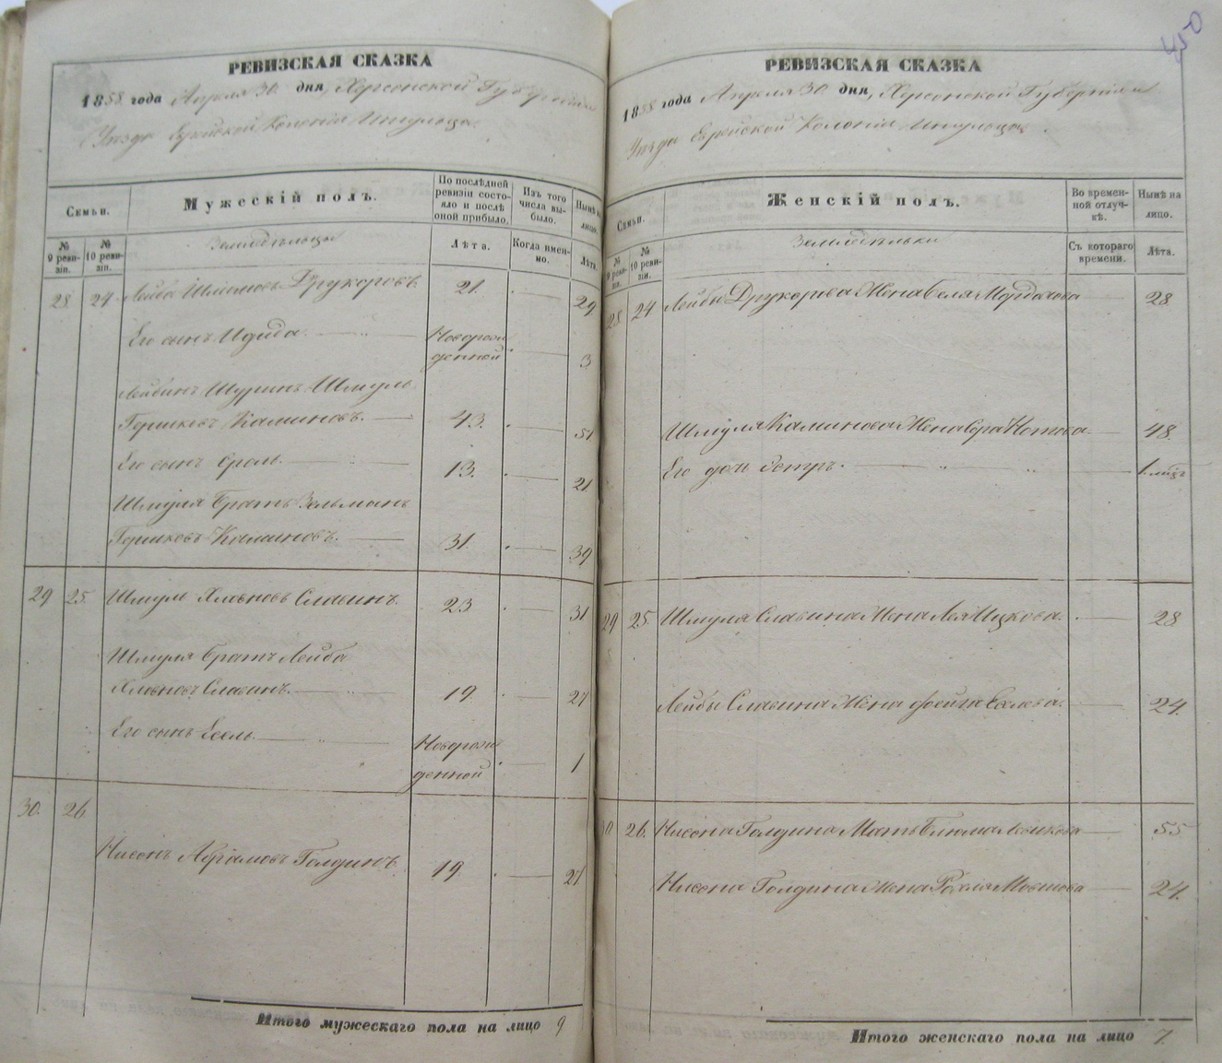 450
РЕВИЗСКАЯ СКАЗКА
1858 года Апреля 30 дня, Херсонской Губернии
Уезда Еврейской Колоніи Ингульца
Семьи.
Мужескій полъ.
По последней ревизіи состояло и послѣ оной прибыло.
Изъ того числа выбыло.
Нынѣ на лицо.
№ 9 ревизіи.
№ 10 ревизіи.
Земледѣльцы
Лѣта.
Когда именно.
Лѣта.
28 24 Лейба Шлиомовъ Друкоровъ 21. 29
Его сынъ Иуда Новорожденной 3
Лейбинъ Шуринъ Шмуль
Гершковъ Каминовъ. 43. 51
Его сынъ Сроль. 13. 21
Шмуля братъ Зельманъ
Гершковъ Каминовъ. 31. 39
29 25. Шмуль Славинъ. 23 31
Шмуля братъ Лейба
Славинъ. 19. 27
Его сынъ Новорожденной 1
30. 26.
Нисонъ Абрамовъ Голдинъ. 19. 27
Итого мужескаго пола на лицо 9
РЕВИЗСКАЯ СКАЗКА
1858 года Апреля 30 дня, Херсонской Губерніи
Уезда Еврейской Колоніи Ингульца.
Семьи.
Женскій полъ.
Во временной отлучкѣ.
Нынѣ на лицо.
№ 9 ревизіи.
№ 10 ревизіи.
Земледѣльки
Съ котораго времени.
Лѣта.
28 24 Лейбы Друкорова Жена Беля Мордхова 28
Шмуля Каминова Жена Сора 48.
Его дочь Эстръ. 1.
29 25. Шмуля Славина Жена Лея Ицкова. 28
Лейбы Славина Жена Фейга 24.
30 26. Нисона Голдина Мать Блюма 55
Нисона Голдина Жена Рохля Мовшова 24.
Итого женскаго пола на лицо 7.